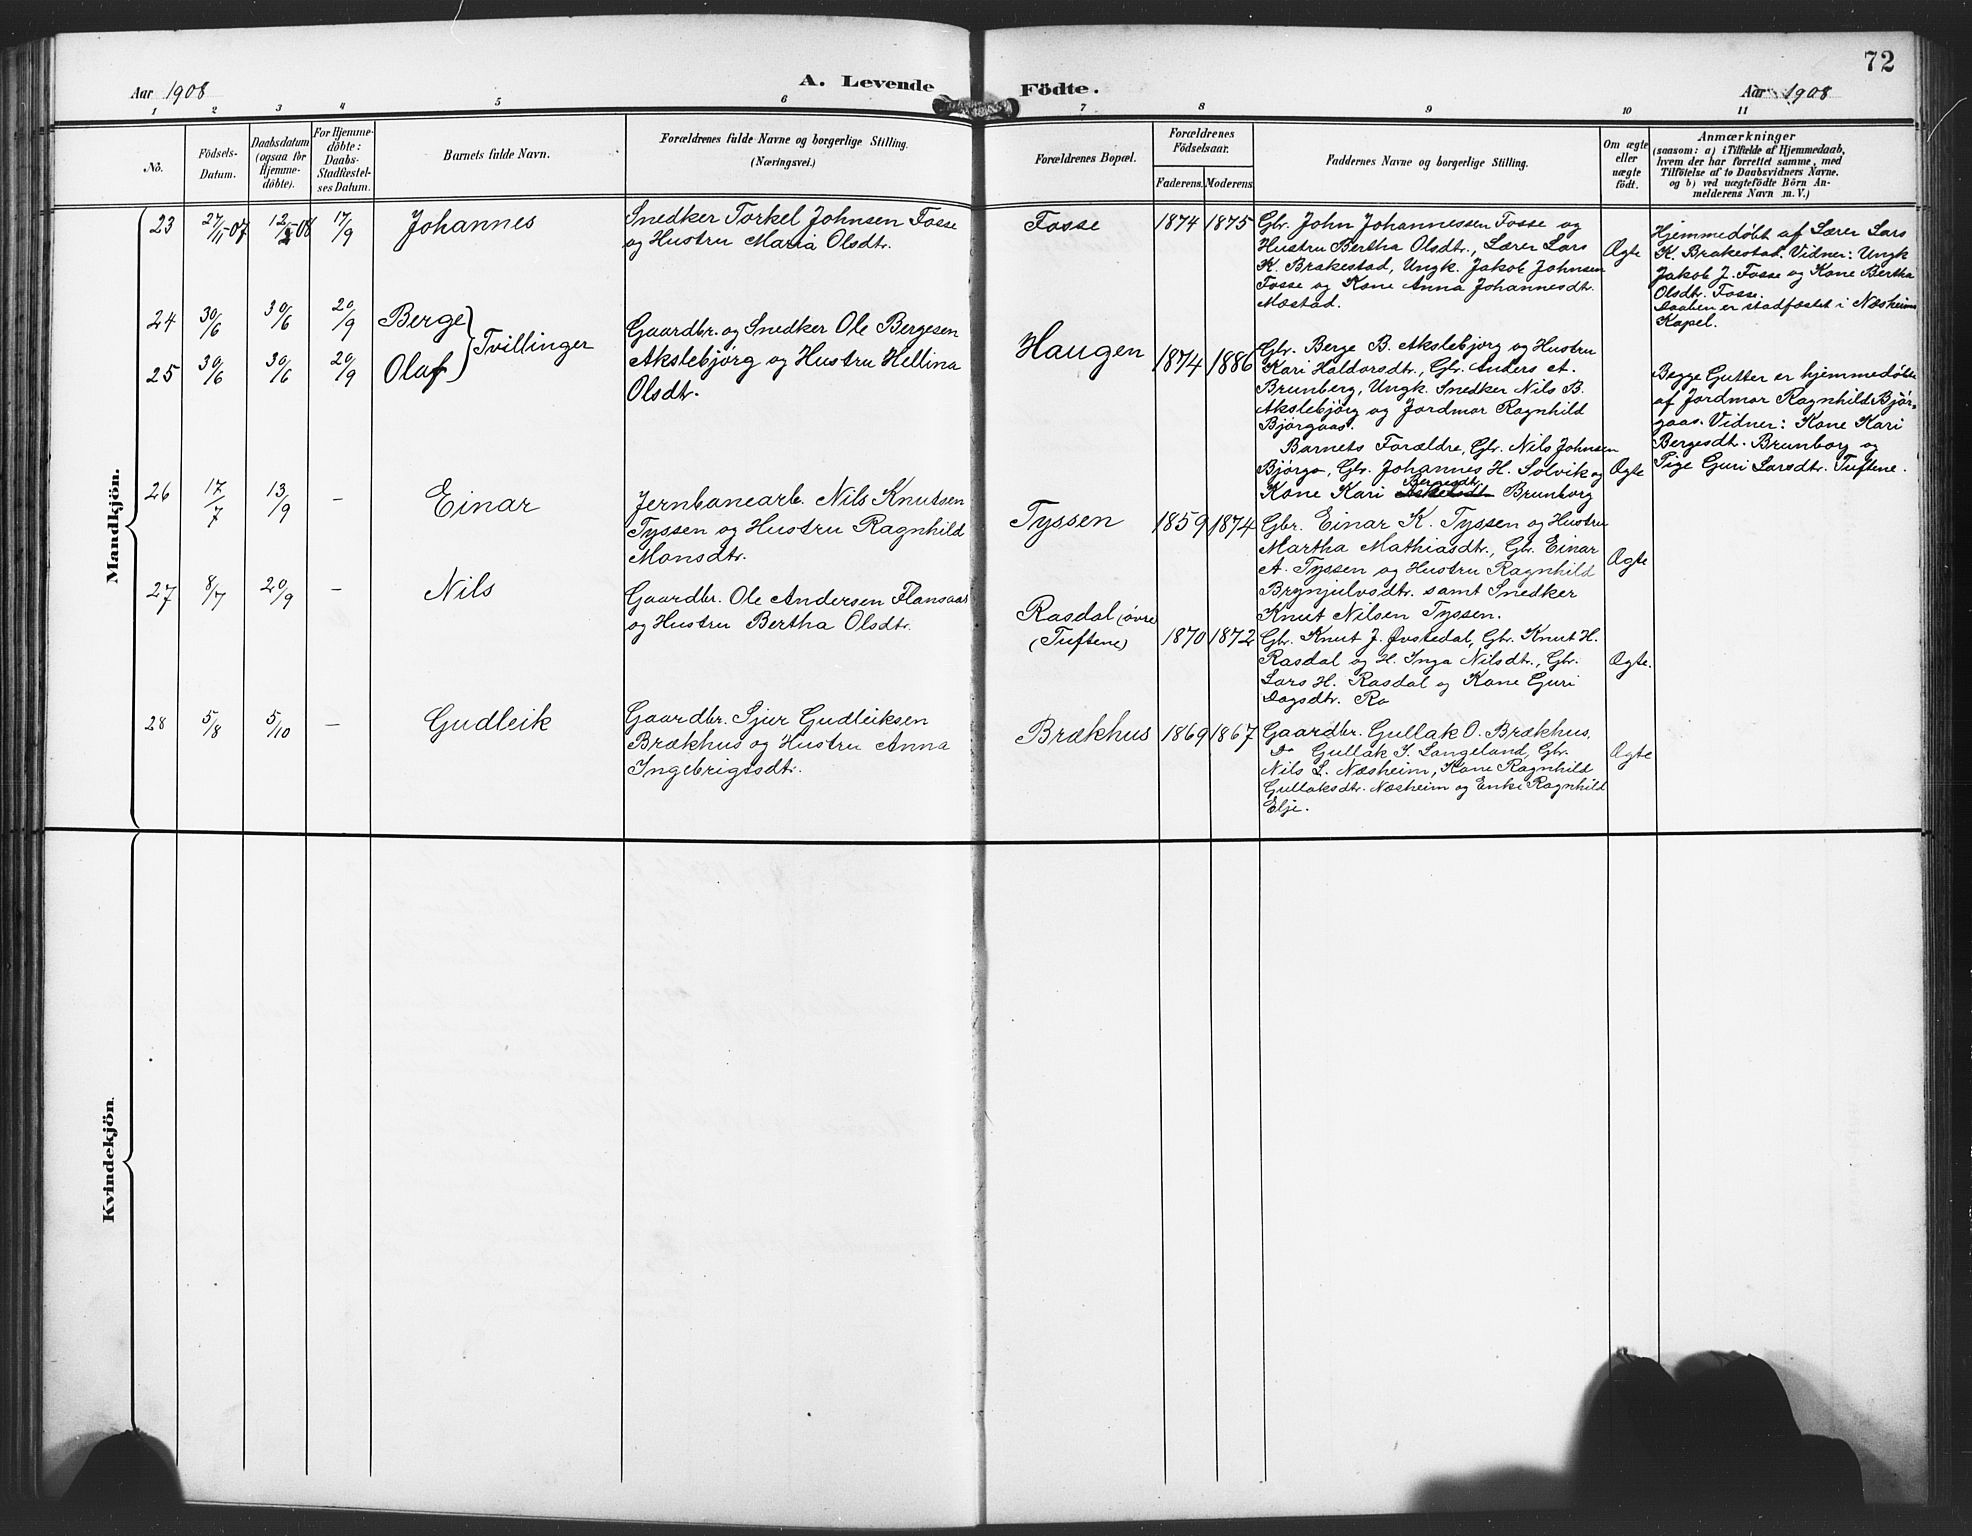 72
Aar 1908
A. Levende Födte.
Aar 1908
1 2 3 4 5 6 7 8 9 10 11
No.
Födsels-
Datum.
Daabsdatum
(ogsaa for
Hjemme-
döbte).
For Hjemme-
döbte:
Daabs-
Stadfæstel-
ses Datum.
Barnets fulde Navn.
Forældrenes fulde Navne og borgerlige Stilling.
(Næringsvei.)
Forældrenes Bopæl.
Forældrenes
Födselsaar.
Faderens. Moderens
Faddernes Navne og borgerlige Stilling.
Om ægte
eller
uægte
födt.
Anmærkninger
(saasom: a) i Tilfælde af Hjemmedaab,
hvem der har forrettet samme, med
Tilföielse af to Daabsvidners Navne.
og b) ved uægtefödte Börn An-
melderens Navn m. V.)
Mandkjön.
23 27/11-07 12/2-08 17/9 Johannes
Snedker Torkel Johnsen Fosse
og Hustru Maria Olsdtr.
Fosse 1874 1875
Gbr. John Johannessen Fosse og
Hustru Bertha Olsdtr., Lærer Lars
K. Brakestad, Ungk. Jakob Johnsen
Fosse og Kone Anna Johannesdtr.
Mæstad.
Ægte
Hjemmedøbt af Lærer Lars
K. Brakestad. Vidner: Ungk
Jakob J. Fosse og Kone Bertha
Olsdtr. Fosse.
Daaben er stadfæstet i Næsheim
Kapel.
24 30/6 30/6 20/9 Berge
25 30/6 30/6 20/9 Olaf
Tvillinger
Gaardbr. og Snedker Ole Bergesen
Akslebjørg og Hustru Hellina
Olsdtr.
Haugen 1874 1886
Gbr. Berge B. Akslebjørg og Hustru
Kari Haldorsdtr., Gbr. Anders A.
Brunberg, Ungk. Snedker Nils B.
Akslebjørg og Jordmor Ragnhild
Bjørgaas.
Barnets Forældre, Gbr. Nils Johnsen
Bjørgo, Gbr. Johannes H. Solvik og
Kone Kari Bergesdtr. Brunborg
Ægte
Begge Gutter er hjemmedøbte
af Jordmor Ragnhild Bjør-
gaas. Vidner: Kone Kari
Bergesdt. Brunborg og
Pige Guri Larsdtr. Tuftene.
26 17/7 13/9 – Einar
Jernbanearb. Nils Knutsen
Tyssen og Hustru Ragnhild
Monsdtr.
Tyssen 1859 1874
Gbr. Einar K. Tyssen og Hustru
Martha Mathiasdtr., Gbr. Einar
A. Tyssen og Hustru Ragnhild
Brynjulvsdtr. samt Snedker
Knut Nilsen Tyssen.
Ægte
27 8/7 20/9 – Nils
Gaardbr. Ole Andersen Flansaas
og Hustru Bertha Olsdtr.
Rasdal (øvre
(Tuftene) 1870 1872
Gbr. Knut J. Øvstedal, Gbr. Knut H.
Rasdal og H. Inga Nilsdtr., Gbr.
Lars H. Rasdal og Kone Guri
Dagsdtr. Ro
Ægte.
28 5/8 5/10 – Gudleik
Gaardbr. Sjur Gudleiksen
Brækhus og Hustru Anna
Ingebrigtsdtr.
Brækhus 1869 1867
Gaardbr. Gullak O. Brækhus,
Do Gullak S. Langeland, Gbr.
Nils L. Næsheim, Kone Ragnhild
Gullaksdtr. Næsheim og Enke Ragnhild
Elje.
Ægte
Kvindekjön.